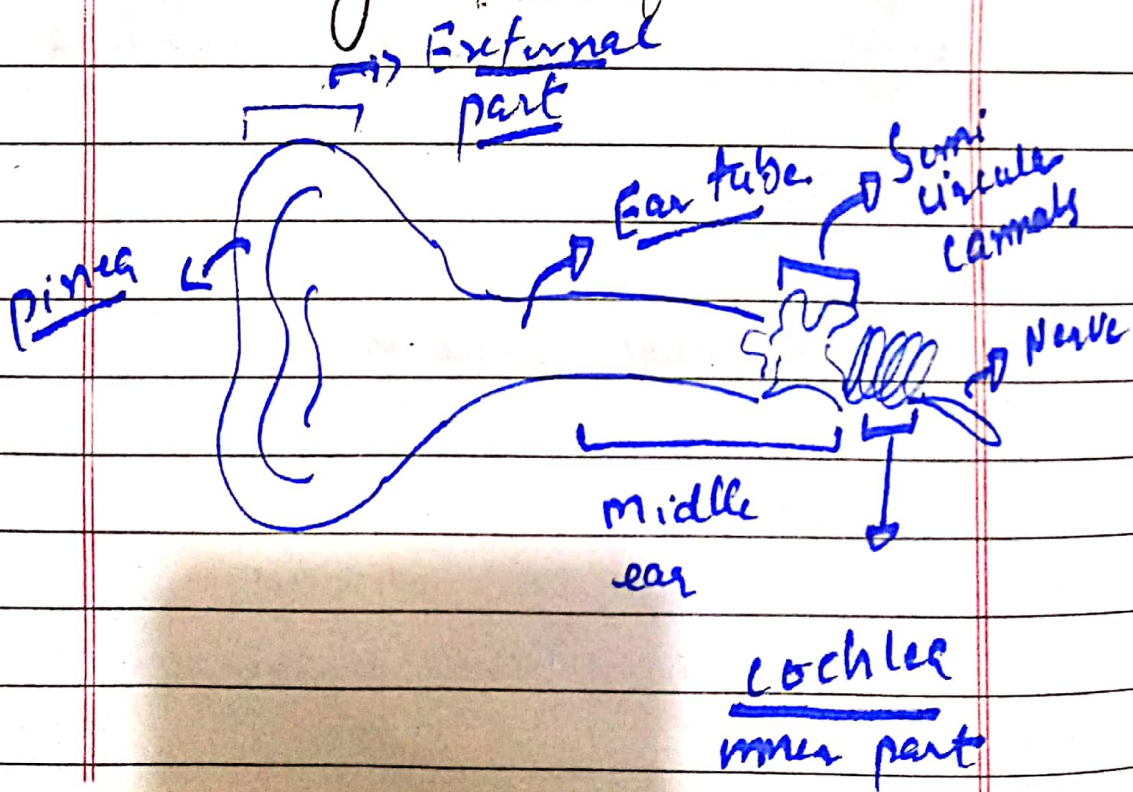 External
part
Ear tube
Semi
circular
cannals
pinea
Nerve
midlle
ear
cochlea
inner part